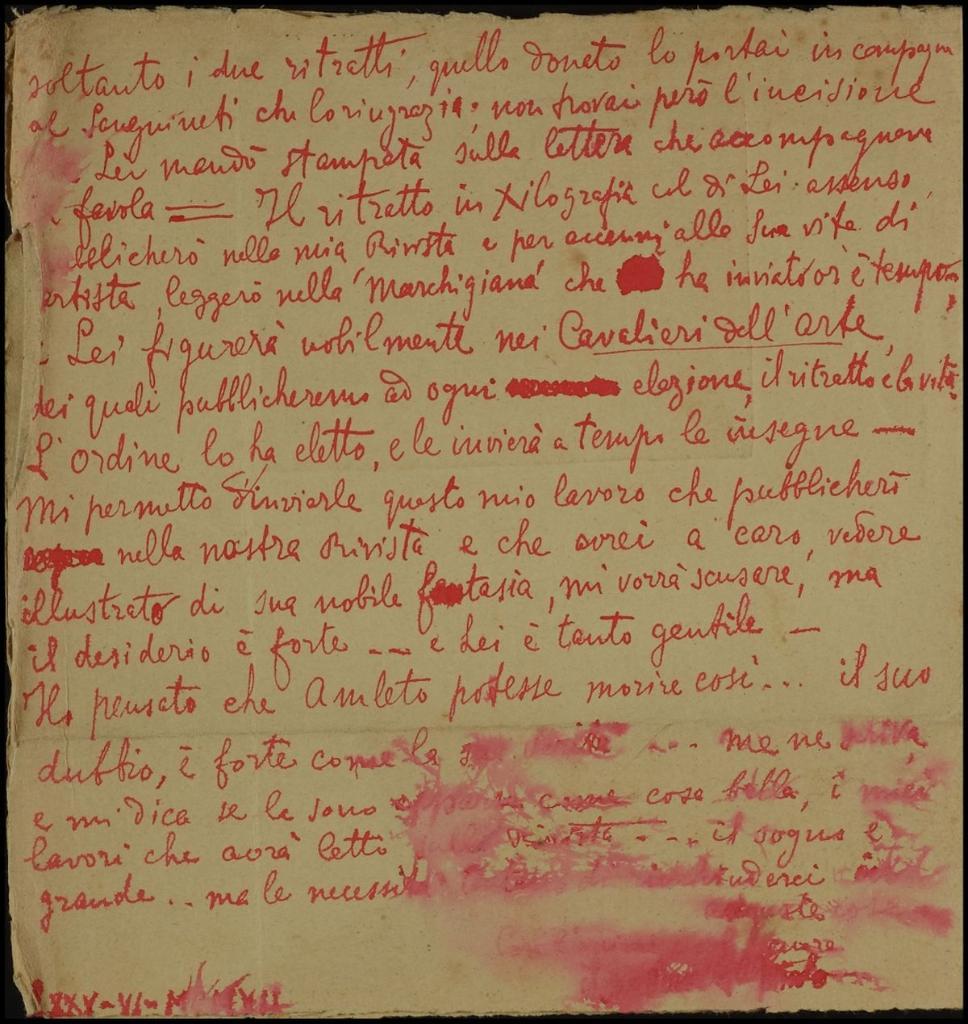 soltanto i due ritratti, quello donato lo portai in campagna
al Sanguineti che lo ringrazia; non trovai però l'incisione
Lei mandò stampata sulla lettera che accompagnava
favola — Il ritratto in Xilografia col di Lei assenso,
bblicherò nella mia Rivista e per accenni alla Sua vita di
artista, leggerò nella "Marchigiana" che ha inviato or è tempo
- Lei figurerà nobilmente nei Cavalieri dell'arte,
dei quali pubblicheremo ad ogni elezione, il ritratto e la vita.
L'ordine lo ha eletto, e le invierà a tempo le insegne —
Mi permetto d'inviarle questo mio lavoro che pubblicherò
nella nostra Rivista e che avrei a caro, vedere
illustrato di sua nobile fantasia, mi vorrà scusare, ma
il desiderio è forte -- e Lei è tanto gentile —
Ho pensato che Amleto potesse morire così... il suo
dubbio, è forte come la ... me ne scriva,
e mi dica se le sono come cosa bella, i miei
lavori che avrà letto Rivista ... il sogno è
grande .. ma le